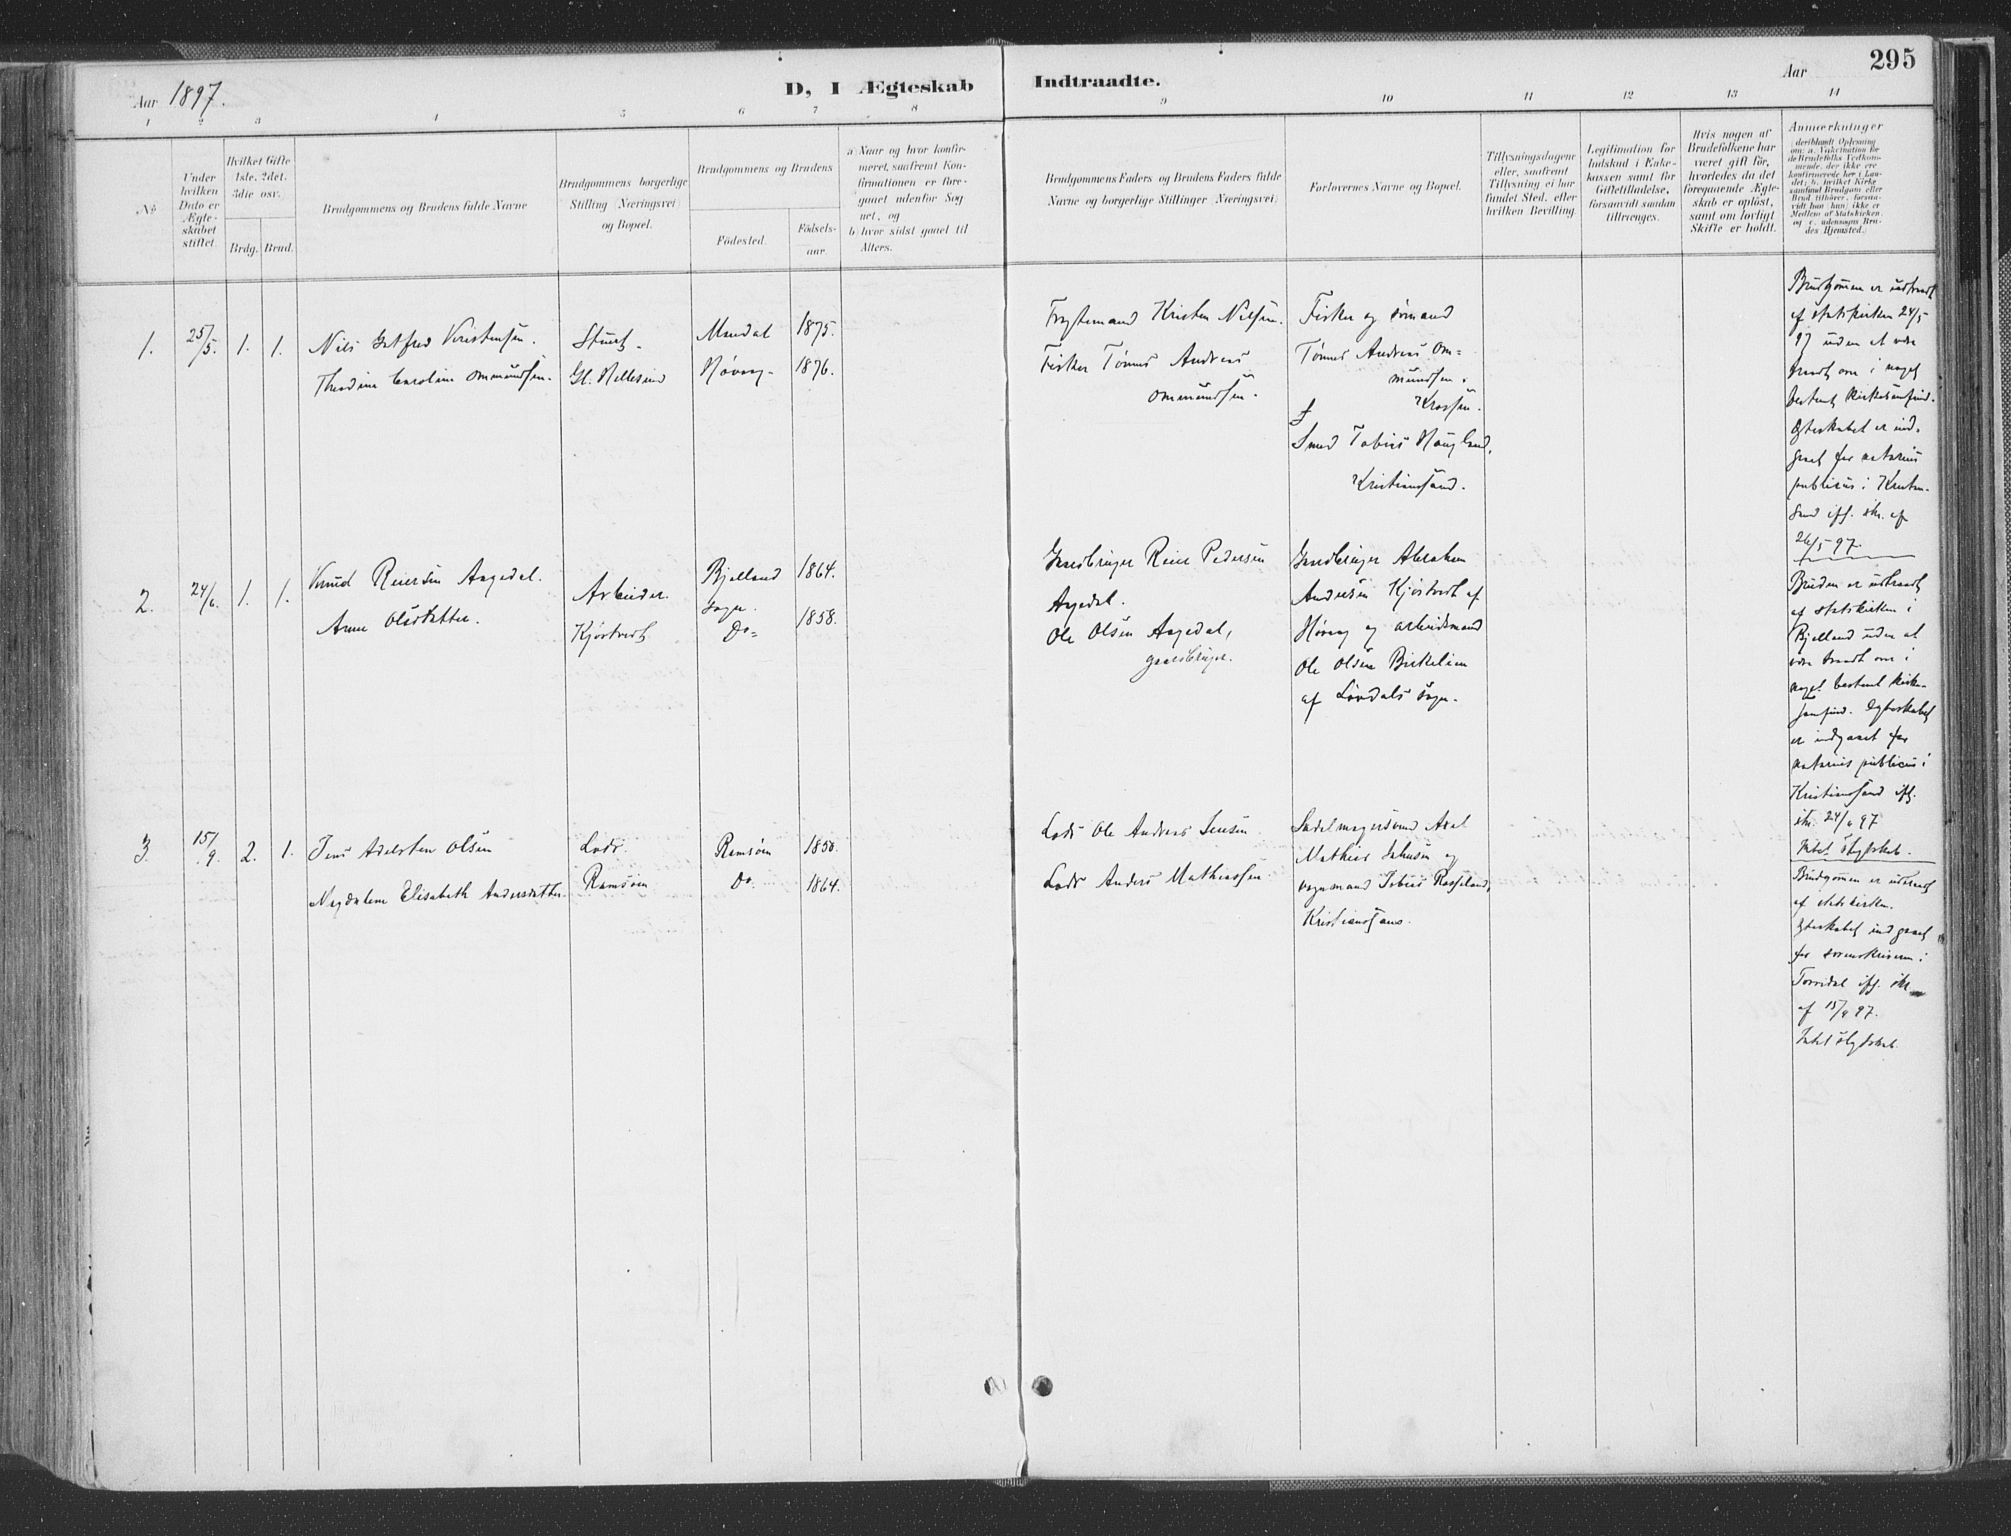 295
Aar 1897.
D, I Ægteskab Indtraadte.
Aar
1 2 3 4 5 6 7 8 9 10 11 12 13 14
No
Under hvilken Dato er Ægteskabet stiftet.
Hvilket Gifte 1ste, 2det, 3die osv.
Brdg. Brud.
Brudgommens og Brudens fulde Navne
Brudgommens borgerlige Stilling (Næringsvei) og Bopæl.
Brudgommens og Brudens
Födested.
Födselsaar.
a) Naar og hvor konfirmeret, saafremt Konfirmationen er foregaaet udenfor Sognet, og
b) hvor sidst gaaet til Alters.
Brudgommens Faders og Brudens Faders fulde Navne og borgerlige Stillinger (Næringsvei)
Forlovernes Navne og Bopæl.
Tillysningsdagene eller, saafremt Tillysning ei har fundet Sted, efter hvilken Bevilling.
Legitimation for Indskud i Enkekassen samt for Giftetilladelse, forsaavidt saadan tiltrænges.
Hvis nogen af Brudefolkene har været gift för, hvorledes da det foregaaende Ægteskab er oplöst, samt om lovligt Skifte er holdt.
Anmærkninger
(deriblandt Oplysning om: a. Vakcination for de Brudefolks Vedkommende, der ikke ere konfirmerede her i Landet; b. hvilket Kirkesamfund Brudgom eller Brud tilhörer, forsaavidt han (hun) ikke er Medlem af Statskirken, og c. udensogns Brudes Hjemsted.)
1. 25/5. 1. 1.
Nils Gotfred Kristensen.
Thedine Caroline Ommundsen.
Stuert.
Gl. Hellesund
Mandal 1875.
Høvaag 1876.
Kristen Nilsen.
Fisker Tønnes Andreas
Ommundsen.
Fisker og sømand
Tønnes Andreas Om=
mundsen.
Krossen.
Smed Tobias Haugland,
Kristianssand.
Brudgommen er udtraadt
af statskirken 24/5
97 uden at være
traadt over i noget
bestemt kirkesamfund.
Ægteskabet er ind-
gaaet for notarius
publicus i Kristian-
sand ifl. skr. af
26/5 97.
2. 24/6. 1. 1.
Knud Reiersen Aagedal.
Anne Olsdatter.
Arbeider.
Kjøstvedt
Bjelland 1864.
sogn.
Do= 1858.
Gaardbruger Reier Pedersen
Aagedal.
Ole Olsen Aagedal,
gaardbruger.
Gaardbruger Abraham
Andersen Kjøstvedt af
Høvaag og arbeidsmand
Ole Olsen Birkelien
af sogn.
Bruden er udtraadt
af statskirken i
Bjelland uden at
være traadt over i
noget bestemt kirke-
samfund. Ægteskabet
er indgaaet for
notarius publicus i
Kristianssand ifl.
skr. 24/6 97
Intet slægtskab.
3. 15/9. 2. 1.
Jens Adelsten Olsen
Magdalene Elisabeth Andersdatter.
Lods.
Ramsøen
Ramsøen 1850.
Do. 1864.
Lods Ole Andreas Jensen
Lods Anders Mathiassen.
Sadelmagersvend Axel
Mathias Johnsen og
vognmand Tobias Rosseland,
Kristianssand.
Brudgommen er udtraadt
af statskirken.
Ægteskabet indgaaet
for sorenskriveren i
Torridal ifl. skr.
af 15/9 97.
Intet slægtskab.